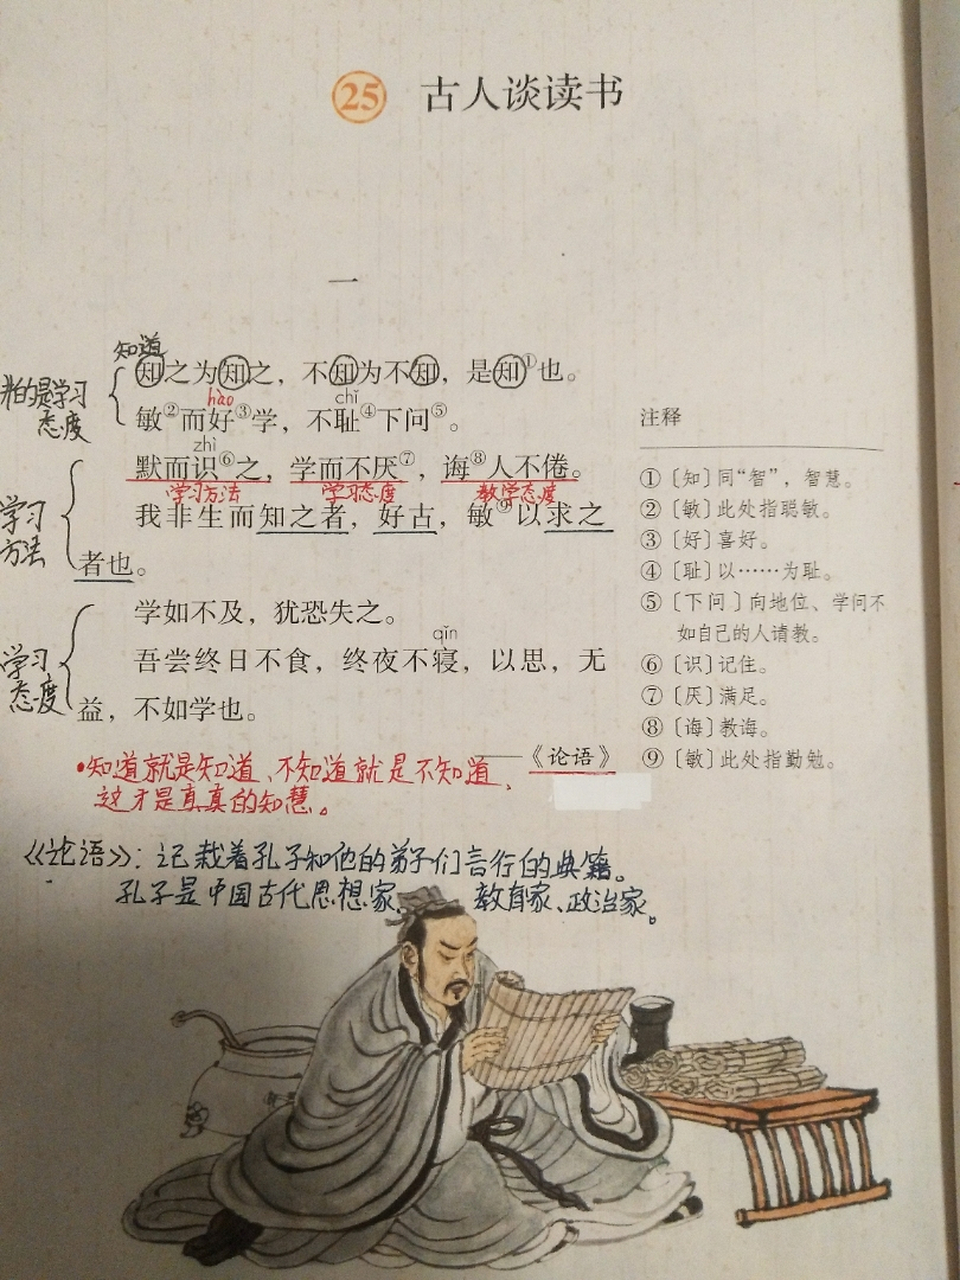 25 古人谈读书
一
知道
知之为知之，不知为不知，是知①也。
的是学习
态度
hào
chǐ
敏②而好③学，不耻④下问⑤。
zhì
默而识⑥之，学而不厌⑦，诲⑧人不倦。
学习方法 学习态度 教学态度
学习
方法
我非生而知之者，好古，敏⑨以求之
者也。
学如不及，犹恐失之。
qǐn
学习
态度
吾尝终日不食，终夜不寝，以思，无
益，不如学也。
——《论语》
•知道就是知道、不知道就是不知道、
这才是真真的知慧。
《论语》：记载着孔子和他的弟子们言行的典籍。
孔子是中国古代思想家、教育家、政治家。
注释
①〔知〕同“智”，智慧。
②〔敏〕此处指聪敏。
③〔好〕喜好。
④〔耻〕以……为耻。
⑤〔下问〕向地位、学问不
如自己的人请教。
⑥〔识〕记住。
⑦〔厌〕满足。
⑧〔诲〕教诲。
⑨〔敏〕此处指勤勉。